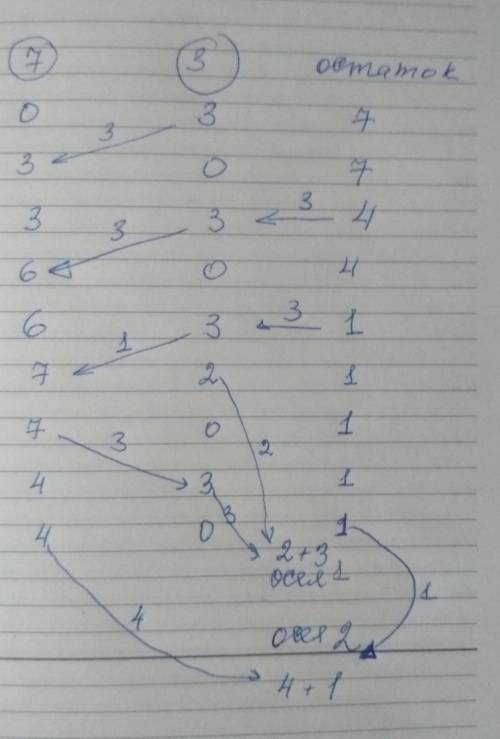 7 3 остаток
0 3 7
3
3 0 7
3
3 3 4
3
6 0 4
3
6 3 1
1
7 2 1
7 0 1
3 2
4 3 1
3
4 0 1
2+3
осел 1
1
4
осел 2
4+1